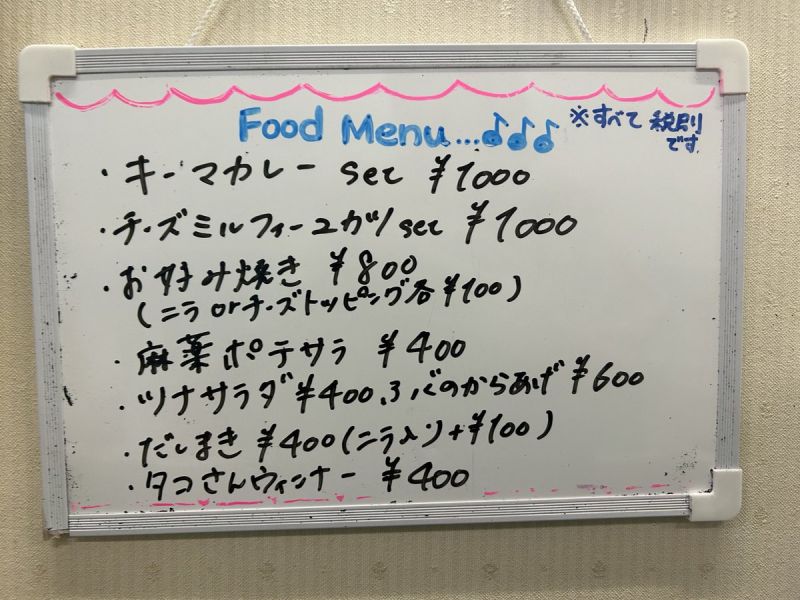 Food Menu...♪♪♪ ※すべて税別です
・キーマカレー set ¥1000
・チーズミルフィーユカツ set ¥1000
・お好み焼き ¥800
(ニラ or チーズトッピング各¥100)
・麻薬ポテサラ ¥400
・ツナサラダ¥400、サバのからあげ ¥600
・だしまき ¥400(ニラ入り+¥100)
・タコさんウィンナー ¥400